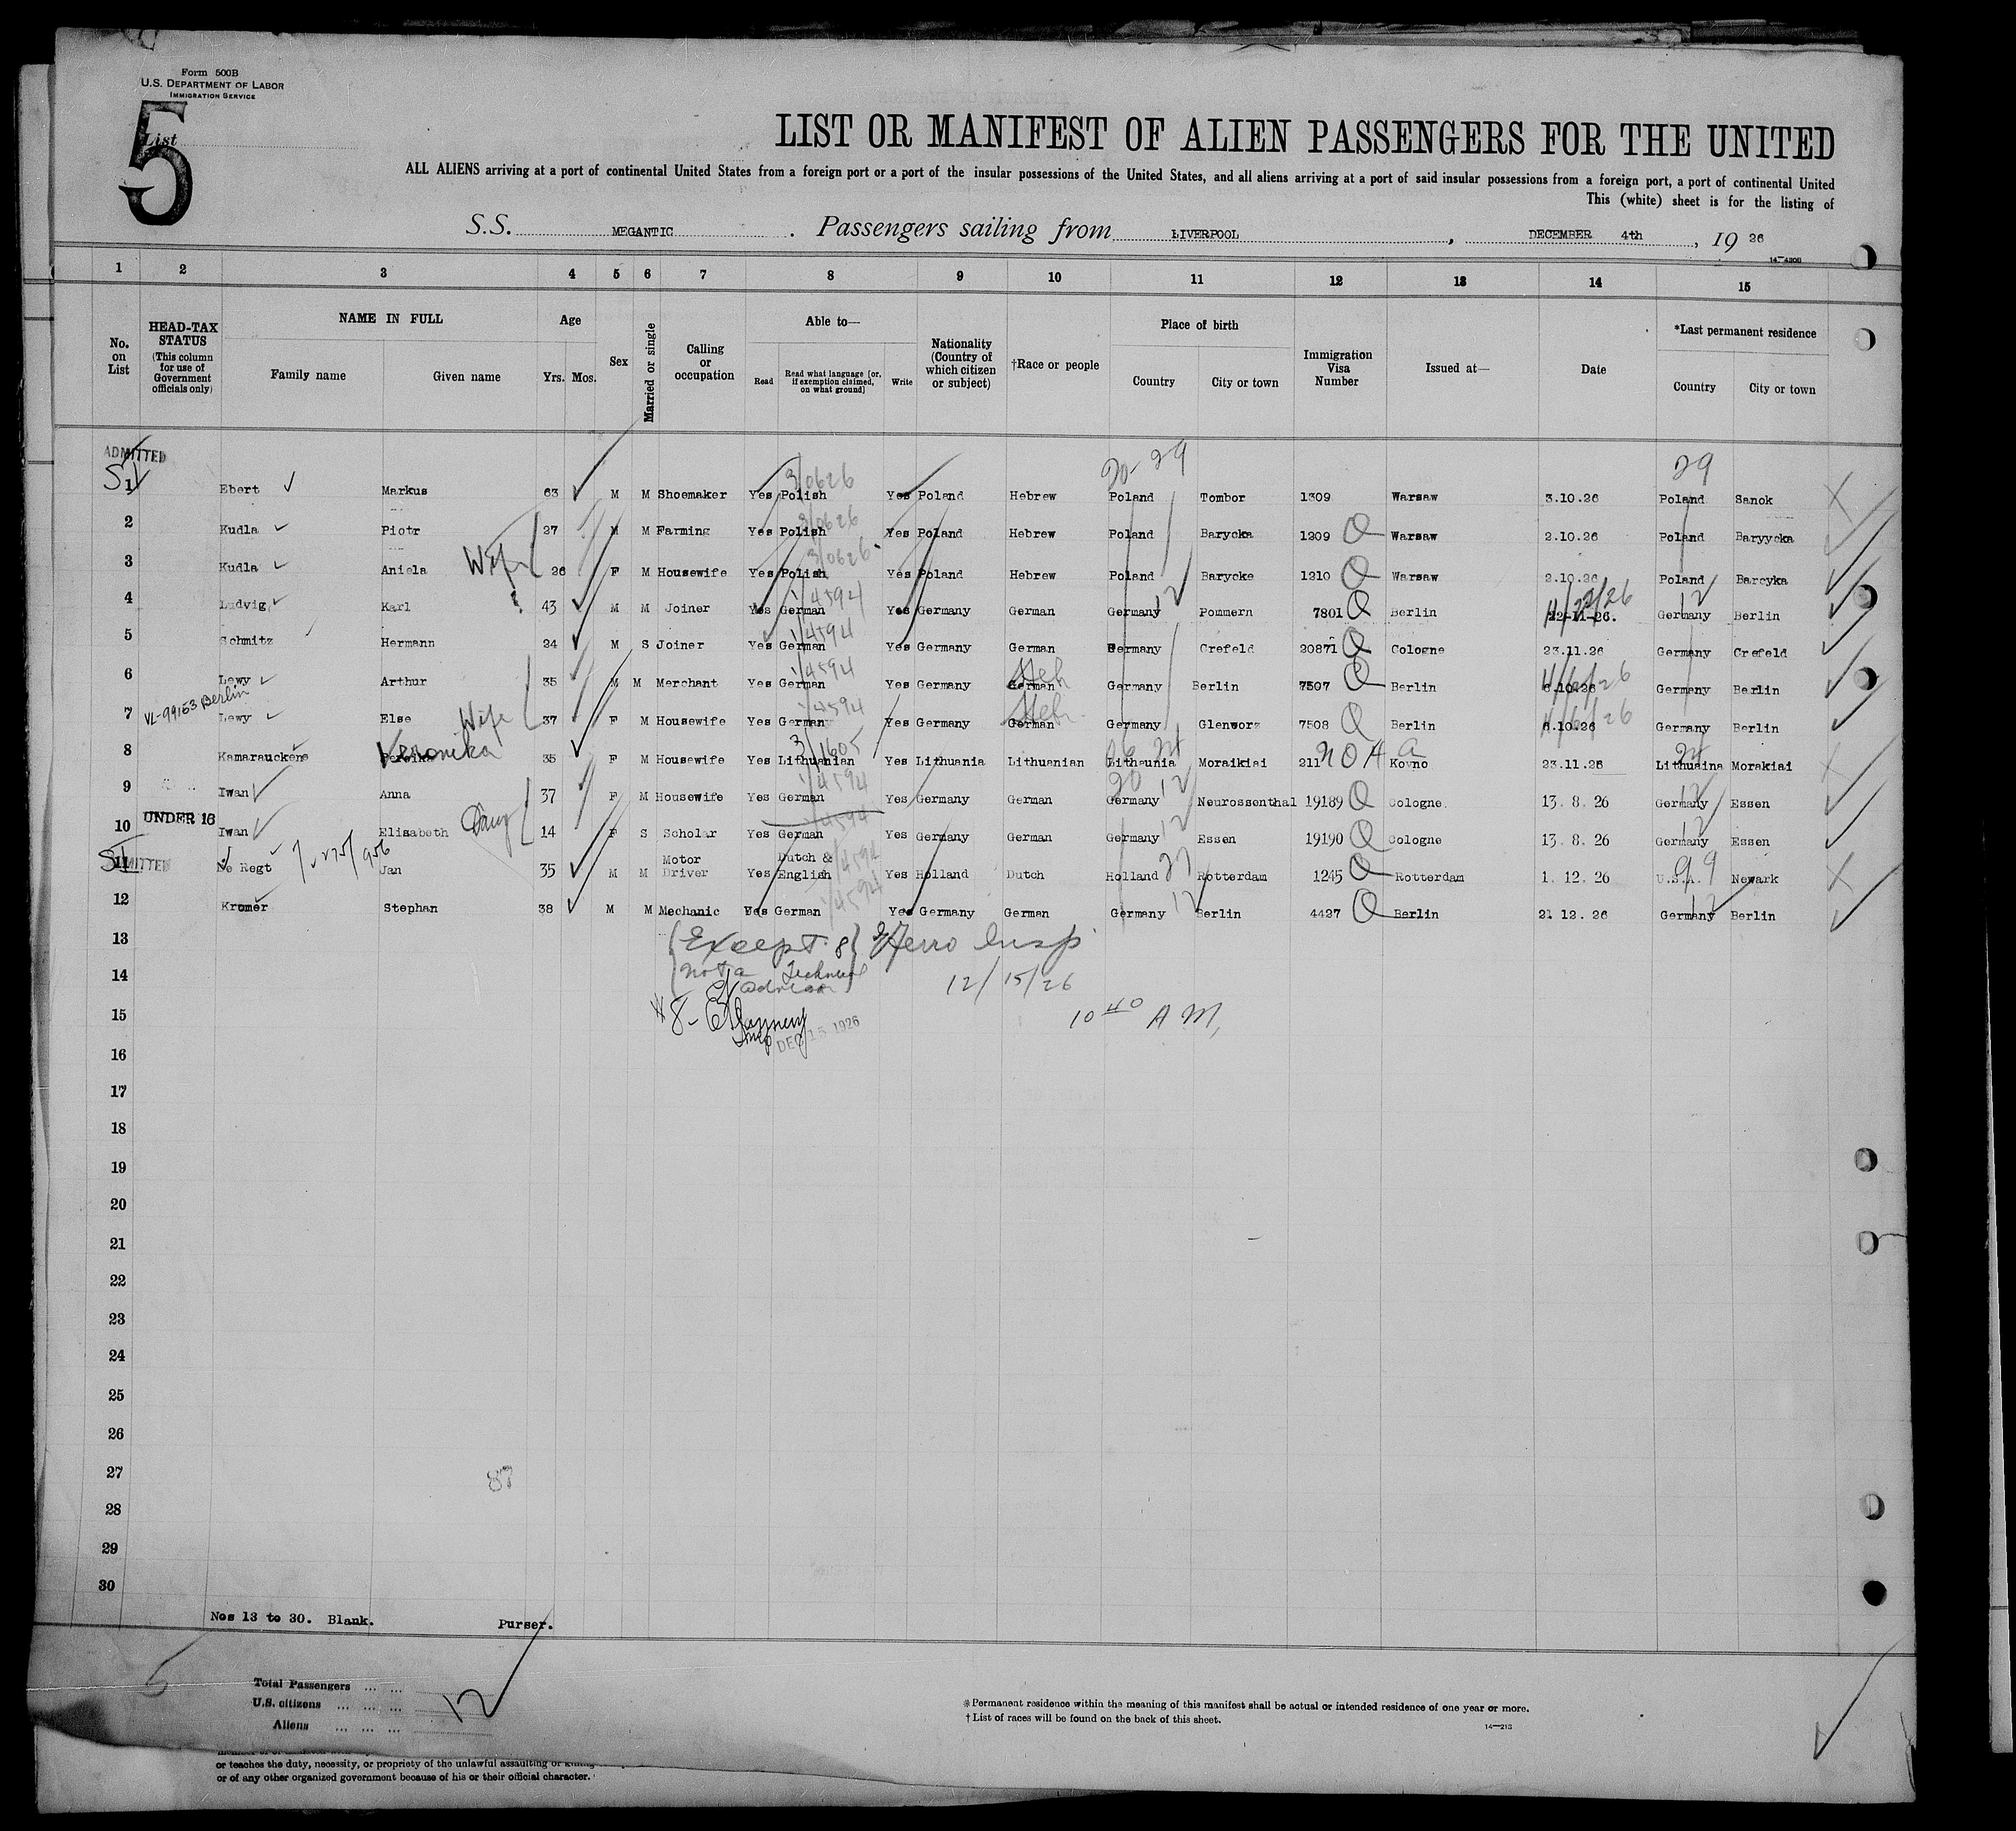 Form 500B
U.S. DEPARTMENT OF LABOR
IMMIGRATION SERVICE
List
5
LIST OR MANIFEST OF ALIEN PASSENGERS FOR THE UNITED
ALL ALIENS arriving at a port of continental United States from a foreign port or a port of the insular possessions of the United States, and all aliens arriving at a port of said insular possessions from a foreign port, a port of continental United
This (white) sheet is for the listing of
S.S. MEGANTIC . Passengers sailing from LIVERPOOL , DECEMBER 4th , 19 26
14-4208
1 2 3 4 5 6 7 8 9 10 11 12 13 14 15
No. on List
HEAD-TAX STATUS (This column for use of Government officials only)
NAME IN FULL
Family name Given name
Age
Yrs. Mos.
Sex
Married or single
Calling or occupation
Able to—
Read
Read what language [or, if exemption claimed, on what ground]
Write
Nationality (Country of which citizen or subject)
†Race or people
Place of birth
Country City or town
Immigration Visa Number
Issued at—
Date
*Last permanent residence
Country City or town
ADMITTED
20-29 29
30626
1 Ebert Markus 63 M M Shoemaker Yes Polish Yes Poland Hebrew Poland Tombor 1309 Warsaw 3.10.26 Poland Sanok
30626
2 Kudla Piotr 27 M M Farming Yes Polish Yes Poland Hebrew Poland Barycka 1209 Warsaw 2.10.26 Poland Baryycka
30626
3 Kudla Aniela Wife 26 F M Housewife Yes Polish Yes Poland Hebrew Poland Barycke 1210 Warsaw 2.10.26 Poland Barcyka
14594 12 11/22/26 12
4 Ludvig Karl 43 M M Joiner Yes German Yes Germany German Germany Pommern 7801 Berlin 22-11-26. Germany Berlin
14594
5 Schmitz Hermann 24 M S Joiner Yes German Yes Germany German Germany Crefeld 20871 Cologne 23.11.26 Germany Crefeld
14594 Heb
6 Lewy Arthur 35 M M Merchant Yes German Yes Germany German Germany Berlin 7507 Berlin 6.10.26 Germany Berlin
VL-99153 Berlin
14594 Heb
7 Lewy Else Wife 37 F M Housewife Yes German Yes Germany German Germany Glenworz 7508 Berlin 6.10.26 Germany Berlin
Veronika
31605
8 Kamarauckene 35 F M Housewife Yes Lithuanian Yes Lithuania Lithuanian Lithaunia Moraikiai 211 Kovno 23.11.26 Lithuaina Morakiai
14594 12 12
9 Iwan Anna 37 F M Housewife Yes German Yes Germany German Germany Neurossenthal 19189 Cologne. 13. 8. 26 Germany Essen
UNDER 16
14594 12 12
10 Iwan Elisabeth Daug 14 F S Scholar Yes German Yes Germany German Germany Essen 19190 Cologne 13. 8. 26 Germany Essen
ADMITTED
11 De Regt Jan 35 M M Motor Driver Yes Dutch & English Yes Holland Dutch Holland Rotterdam 1245 Rotterdam 1. 12. 26 U.S.A. Newark
14594 12 12
12 Kromer Stephan 38 M M Mechanic Yes German Yes Germany German Germany Berlin 4427 Berlin 21 12. 26 Germany Berlin
13 Except 8
14 not a Technical
advisor
12/15/26
15 #8-
DEC 15 1926
10 40 A M,
16
17
18
19
20
21
22
23
24
25
26
27
87
28
29
30
Nos 13 to 30. Blank. Purser.
Total Passengers ... ...
U.S. citizens ... ... ...
Aliens ... ... ...
12
*Permanent residence within the meaning of this manifest shall be actual or intended residence of one year or more.
†List of races will be found on the back of this sheet.
14-213
or teaches the duty, necessity, or propriety of the unlawful assaulting or
or of any other organized government because of his or their official character.